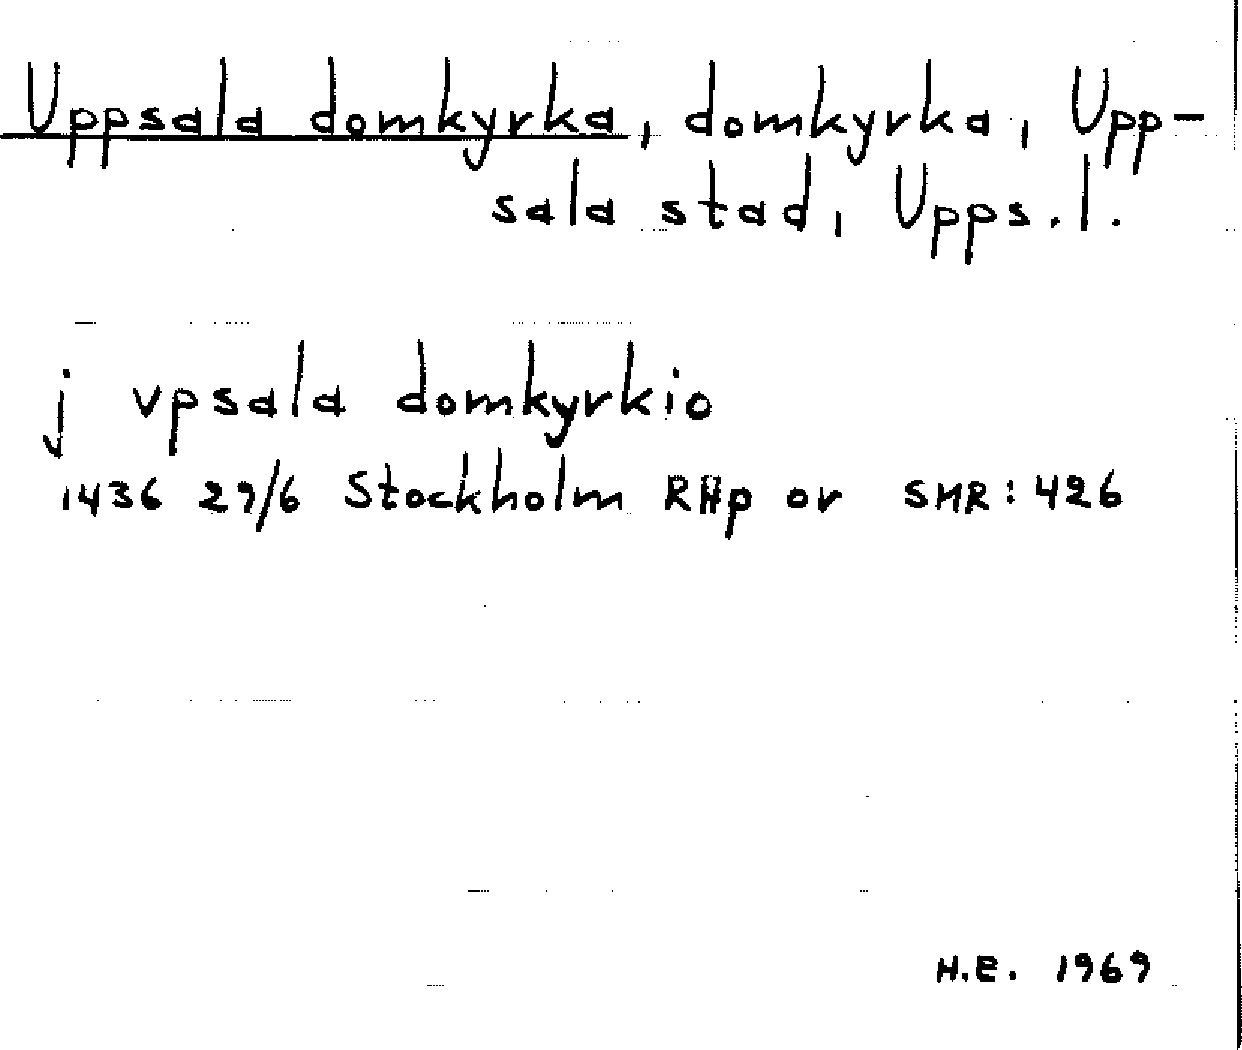 Uppsala domkyrka, domkyrka, Upp-
sala stad, Upps.l.
j vpsala domkyrkio
1436 29/6 Stockholm RHp or SMR: 426
H.E. 1969